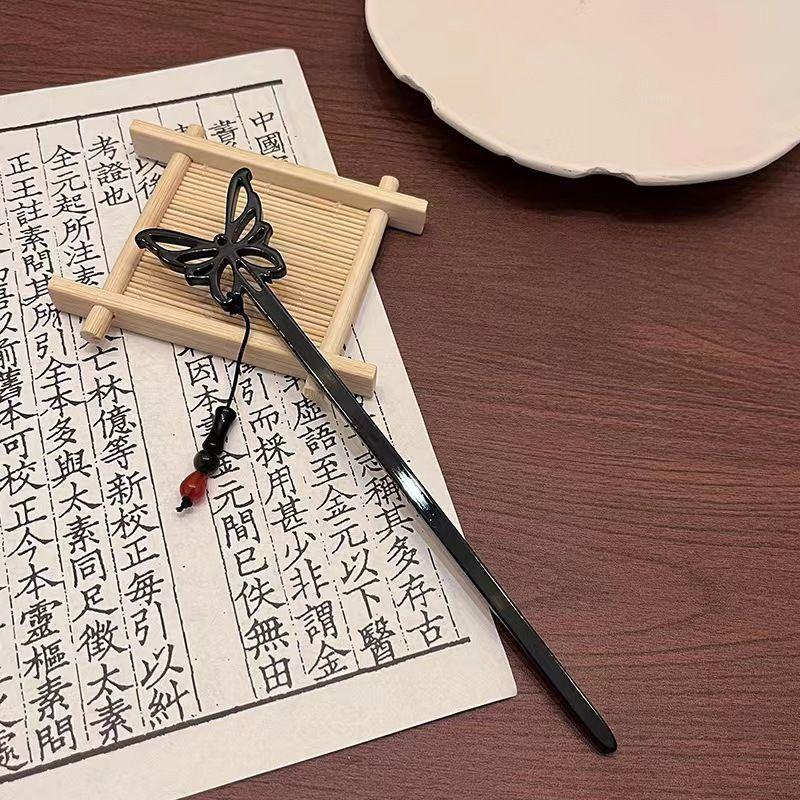 中國
志稱其多存古
書
虛語至金元以下醫
引而採用甚少非謂金
後
因本
金元間已佚無由
考證也
全元起所注素
亡林億等新校正每引以糾
正王註素問其所引全本多與太素同足徵太素
前舊本可校正今本靈樞素問
之處